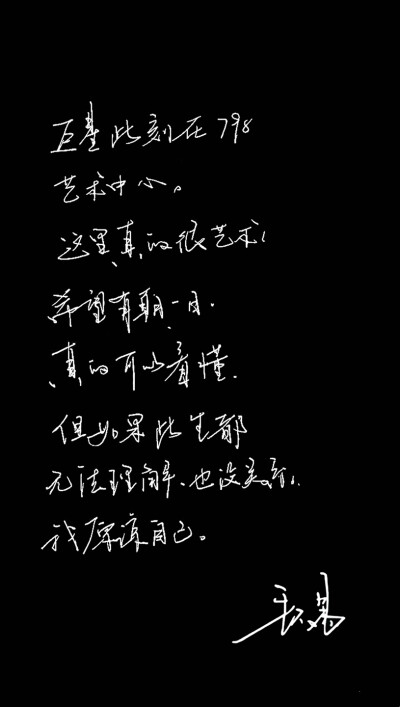 巨基此刻在798
艺术中心。
这里真的很艺术！
希望有朝一日.
真的可以看懂.
但如果此生都
无法理解、也没关系。
我原谅自己。